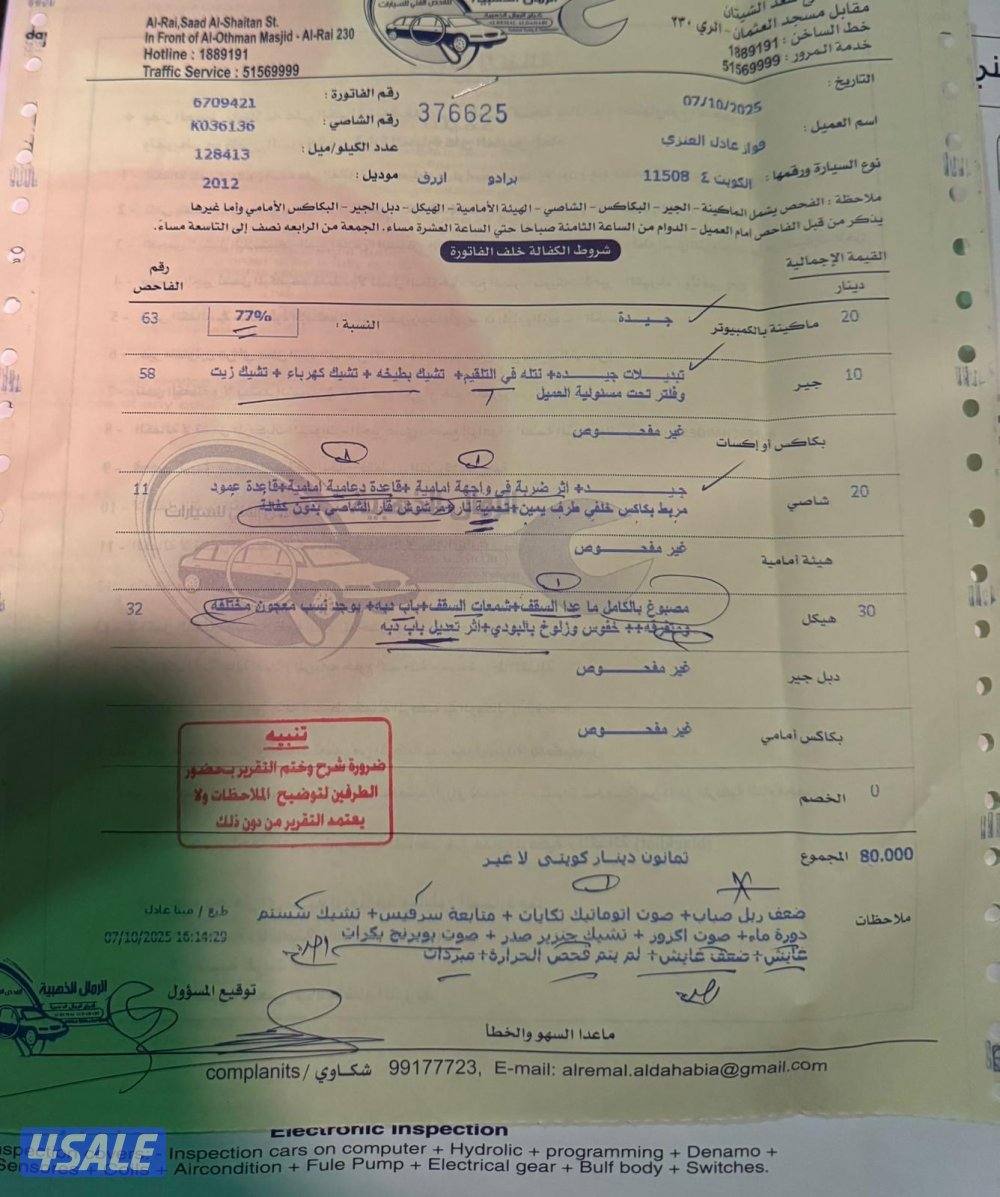 Al-Rai,Saad Al-Shaitan St.
In Front of Al-Othman Masjid - Al-Rai 230
Hotline : 1889191
Traffic Service : 51569999
مقابل مسجد العثمان - الري ٢٣٠
خط الساخن: 1889191
خدمة المرور: 51569999
التاريخ : 07/10/2025
376625
رقم الفاتورة : 6709421
اسم العميل : فواز عادل العنزي
رقم الشاصي : K036136
عدد الكيلو/ميل : 128413
نوع السيارة ورقمها : الكويت ٤ 11508 برادو ازرق
موديل : 2012
ملاحظة : الفحص يشمل الماكينة - الجير - البكاكس - الشاصي - الهيئة الأمامية - الهيكل - دبل الجير - البكاكس الأمامي وأما غيرها
يذكر من قبل الفاحص امام العميل - الدوام من الساعة الثامنة صباحا حتي الساعة العشرة مساء. الجمعة من الرابعه نصف إلى التاسعة مساء.
شروط الكفالة خلف الفاتورة
القيمة الإجمالية
دينار
رقم الفاحص
20 ماكينة بالكمبيوتر جيدة النسبة : 77% 63
10 جير تبديلات جيده+ نتله في التلقيم+ تشيك بطيخه + تشيك كهرباء + تشيك زيت 58
وفلتر تحت مسئولية العميل
بكاكس أو إكسات غير مفحوص
20 شاصي جيد+ اثر ضربة في واجهة امامية +قاعدة دعامية امامية+قاعدة عمود 11
مربط بكاكس خلفي طرف يمين+تعمية قار+مرشوش قار الشاصي بدون كفالة
هيئة أمامية غير مفحوص
30 هيكل مصبوغ بالكامل ما عدا السقف+شمعات السقف+باب دبه+ يوجد نسب معجون مختلفه 32
ومتفرقه++ خفوس وزلوخ بالبودي+اثر تعديل باب دبه
دبل جير غير مفحوص
بكاكس أمامي غير مفحوص
0 الخصم
تنبيه
ضرورة شرح وختم التقرير بحضور
الطرفين لتوضيح الملاحظات ولا
يعتمد التقرير من دون ذلك
80.000 المجموع ثمانون دينار كويتى لا غير
ملاحظات
ضعف ربل صباب+ صوت اتوماتيك تكايات + متابعة سرفيس+ تشيك سستم
دورة ماء+ صوت اكزوز + تشيك جنزير صدر + صوت بوبرنج بكرات
قايش+ ضعف قايش+ لم يتم فحص الحرارة+ مبردات
طبع / مينا عادل
07/10/2025 16:14:29
توقيع المسؤول
الرمال الذهبية
ماعدا السهو والخطأ
complanits / شكاوي 99177723, E-mail: alremal.aldahabia@gmail.com
Electronic Inspection
- Inspection cars on computer + Hydrolic + programming + Denamo +
+ Aircondition + Fule Pump + Electrical gear + Bulf body + Switches.
4SALE